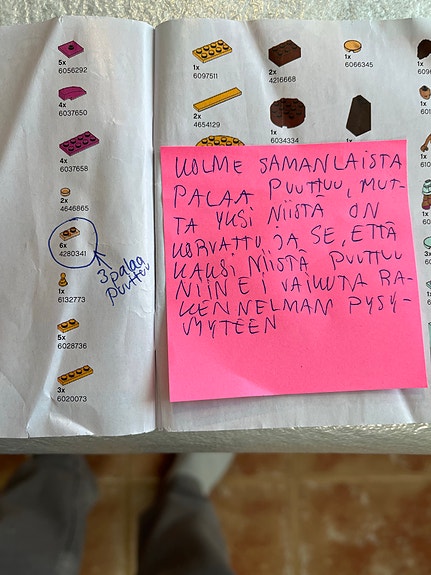 5x
6056292
4x
6037650
4x
6037658
2x
4646865
6x
4280341
3 palaa
puuttuu
1x
6132773
5x
6028736
3x
6020073
1x
6097511
2x
4216668
1x
6066345
2x
4654129
1x
6034334
1x
KOLME SAMANLAISTA
PALAA PUUTTUU, MUT-
TA YKSI NIISTÄ ON
KORVATTU JA SE, ETTÄ
KAKSI NIISTÄ PUUTTUU
NIIN EI VAIKUTA RA-
KENNELMAN PYSY-
VYTEEN